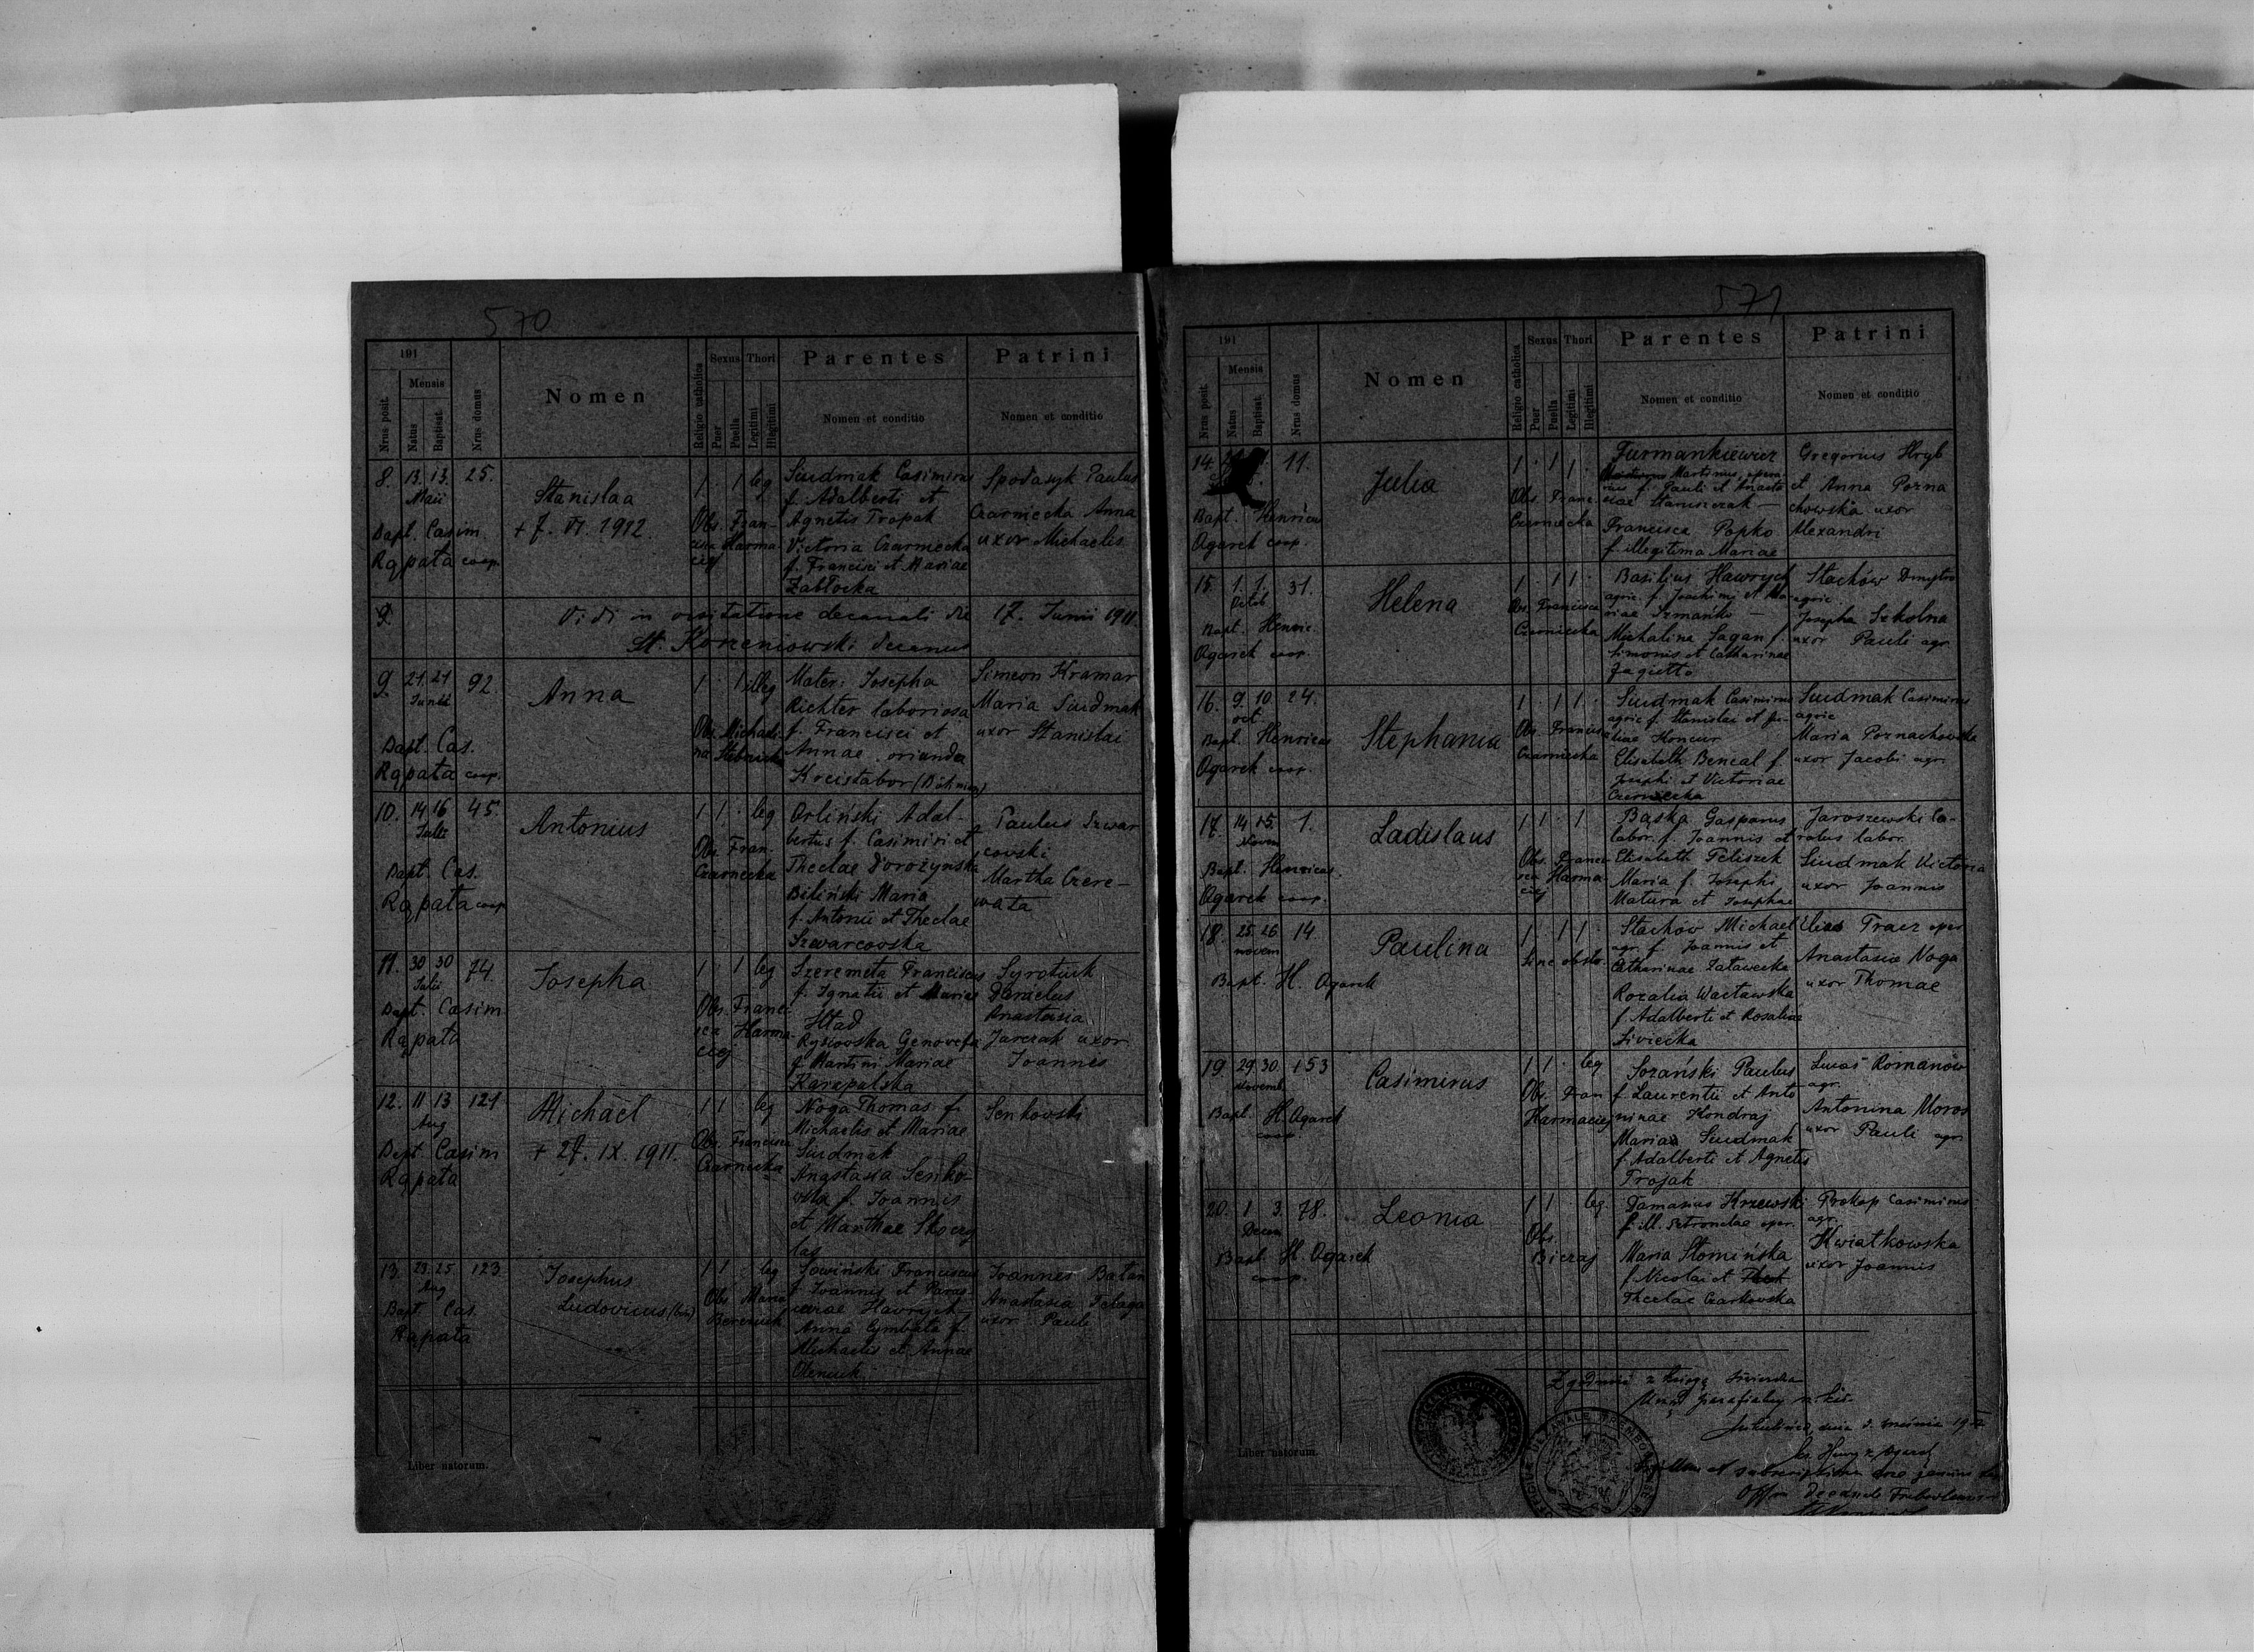 570
191
Nrus posit.
Mensis
Natus
Baptisat.
Nrus domus
Nomen
Religio catholica
Sexus
Puer
Puella
Thori
Legitimi
Illegitimi
Parentes
Nomen et conditio
Patrini
Nomen et conditio
8. 13. 13. 25.
Maii
Bapt. Casim.
Rąpała coop.
Stanislaa
+ 7. VI. 1912.
1 1 leg
Obs. Fran-
cisca Harma-
ciej
Siudmak Casimirus
f. Adalberti et
Agnetis Tropak
Victoria Czarnecka
f. Francisci et Mariae
Zabłocka
Spodaryk Paulus
Czarniecka Anna
uxor Michaelis
9.
Vidi in visitatione decanali die 17. Junii 1911.
St. Korzeniowski decanus
9. 21. 21 92.
Junii
Bapt. Cas.
Rąpała coop.
Anna
1 1 illeg
Obs. Michali-
na
Mater: Josepha
Richter laboriosa
f. Francisci et
Annae orianda
Kreistabor (Böhmen)
Simeon Kramar
Maria Siudmak
uxor Stanislai
10. 14 16 45.
Julii
Bapt. Cas.
Rąpała coop
Antonius
1 1 leg
Obs. Fran.
Czarnecka
Orliński Adal-
bertus f. Casimiri et
Theclae Dorożynska
Biliński Maria
f. Antonii et Theclae
Szwarcowska
Paulus Szwar
cowski
Martha Czere-
wata
11. 30 30 74.
Julii
Bapt. Casim
Rąpała
Josepha
1 1 leg
Obs. Franci-
sca Harma-
ciej
Szeremeta Franciscus
f. Ignatii et Mariae
Hład
Ryszowska Genovefa
f. Martini Mariae
Karapalska
Syrotiuk
Danielus
Anastasia
Jarczak uxor
Joannes
12. 11 13 121
Aug
Bapt. Casim
Rąpała
Michaël
+ 27. IX. 1911.
1 1 leg
Obs. Francisca
Czarniecka
Noga Thomas f.
Michaelis et Mariae
Siudmak
Anastasia Senko-
wska f. Joannis
et Marthae
Senkowski
13. 23. 25 123
Aug
Bapt. Cas.
Rąpała
Josephus
Ludovicus
1 1 leg
Obs. Maria
Bereziuk
Sowiński Franciscus
f. Joannis et Paras-
Hawrych
Anna Cymbała f.
Michaelis et Annae
Oleniuk
Joannes Bałan
Anastasia
uxor Pauli
Liber natorum.
571
191
Nrus posit.
Mensis
Natus
Baptisat.
Nrus domus
Nomen
Religio catholica
Sexus
Puer
Puella
Thori
Legitimi
Illegitimi
Parentes
Nomen et conditio
Patrini
Nomen et conditio
14. 11.
Bapt. Henricus
Ogarek coop.
Julia
1 1 1
Obs. Franc.
Czarniecka
Furmankiewicz
Martinus, opera-
rius f. Pauli et Anasta
siae Staniszczak —
Francisca Popko
f. illegitima Mariae
Gregorius Hryb
et Anna Porna
chowska uxor
Alexandri
15. 1. 1. 31.
Octob
Bapt. Henric.
Ogarek coop.
Helena
1 1 1
Obs. Francisca
Czarniecka
Basilius Hawrych
agric. f. Joachimi et Ma
riae Szmańko —
Michalina Sagan f.
Simonis et Catharinae
Jagiełło
Stachów Dmytro
agric.
Josepha Szkolna
uxor Pauli agr.
16. 9. 10. 24.
oct.
Bapt. Henricus
Ogarek coop.
Stephania
1 1 1
Obs. Francis
Czarniecka
Siudmak Casimirus
agric f. Stanislai et Ju-
liae Honcur
Elisabeth Bencal f.
Josephi et Victoriae
Czarnecka
Siudmak Casimirus
agric
Maria Pornachowska
uxor Jacobi agr.
17. 14. 15. 1.
Novem
Bapt. Henricus.
Ogarek coop.
Ladislaus
1 1 1
Obs. Franci-
sca Harma-
ciej
Baska Gasparus
labor. f. Joannis et
Elisabeth Peliszek
Maria f. Josephi
Matura et Josephae
Jaroszewski Ca-
rolus labor.
Siudmak Victoria
uxor Joannis
18. 25. 26 14.
novem
Bapt. H. Ogarek
Paulina
1 1 1
Sine obstr.
Stachów Michael
agr. f. Joannis et
Catharinae Zatawecka
Rozalia Wacławska
f Adalberti et Rosaliae
Siviecka
Elias Tracz oper
Anastasia Noga
uxor Thomae
19 29. 30. 153
Novemb
Bapt. H. Ogarek
coop.
Casimirus
1 1 leg
Obs. Fran
Harmaciej
Sozański Paulus
f. Laurentii et Anto
ninae Kondraj
Maria Siudmak
f. Adalberti et Agnetis
Trojak
Lucas Romanów
agr.
Antonina Moros
uxor Pauli agr.
20. 1 3. 78.
Decem
Bapt. H. Ogarek
coop.
Leonia
1 1 leg.
Obs.
Bieraj
Damasius Krzewski
f. ill. Petronelae oper.
Maria Słomińska
f Nicolai et
Theclae Czarkowska
Prokop Casimirus
agr.
Kwiatkowska
uxor Joannis
Zgodność z księgą
Urząd parafialny
Liber natorum.